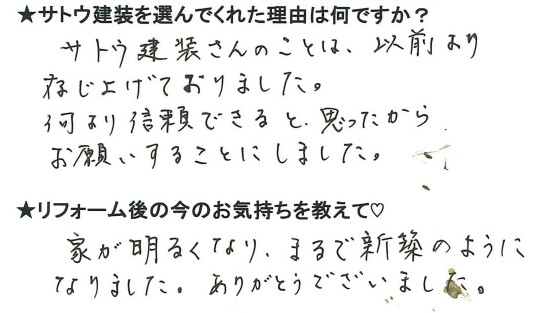 ★サトウ建装を選んでくれた理由は何ですか？
サトウ建装さんのことは、以前より
存じ上げておりました。
何より信頼できると、思ったから
お願いすることにしました。
★リフォーム後の今のお気持ちを教えて♡
家が明るくなり、まるで新築のように
なりました。ありがとうございました。